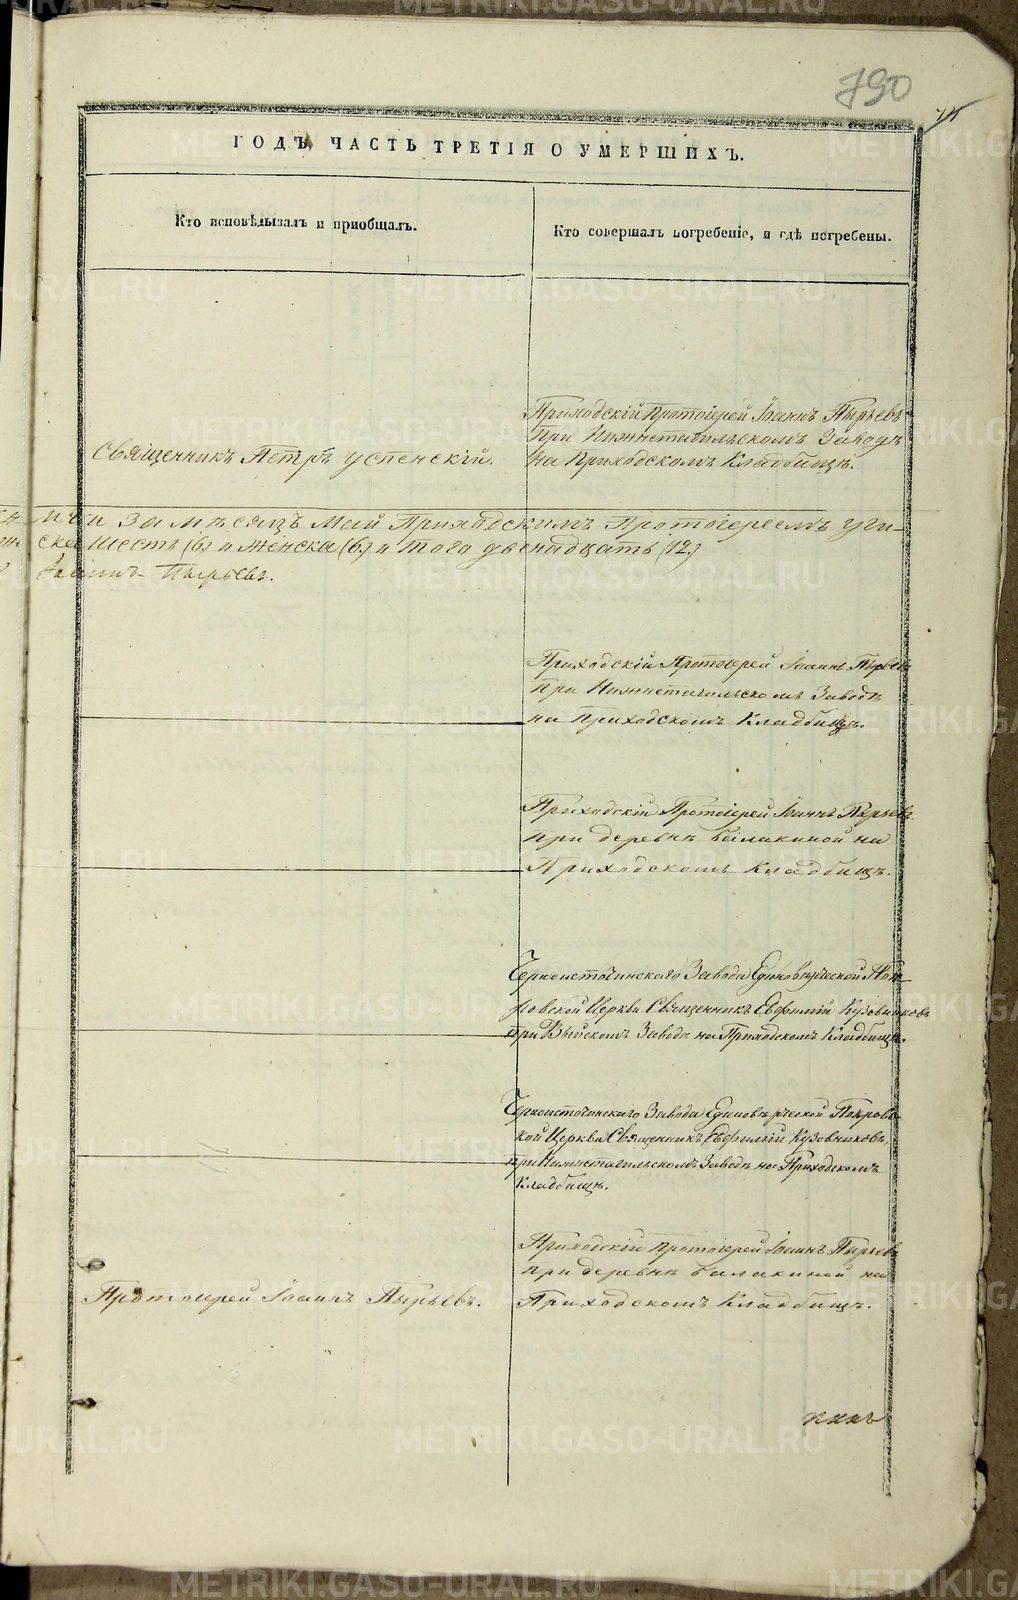 790
ГОДЪ, ЧАСТЬ ТРЕТІЯ О УМЕРШИХЪ.
Кто исповѣдывалъ и приобщалъ.
Кто совершалъ погребеніе, и гдѣ погребены.
Священникъ Петръ Успенскій.
Приходскій Протоіерей Іоаннъ Пырьевъ
при Нижнетагильскомъ Заводѣ
на Приходскомъ Кладбищѣ.
за мѣсяцъ Май Приходскимъ Протоіереемъ учи-
ска шесть (6) и женска (6) и того двенадцать (12)
Іоаннъ Пырьевъ.
Приходскій Протоіерей Іоаннъ Пырьевъ
при Нижнетагильскомъ Заводѣ
на Приходскомъ Кладбищѣ.
Приходскій Протоіерей Іоаннъ Пырьевъ
при деревнѣ Балакиной на
Приходскомъ Кладбищѣ.
Черноисточинскаго Завода Единовѣрческой Пок-
ровской Церкви Священникъ Евфимій Кузовниковъ
при Выйскомъ Заводѣ на Приходскомъ Кладбищѣ.
Черноисточинскаго Завода Единовѣрческой Покровс-
кой Церкви Священникъ Евфимій Кузовниковъ,
при Нижнетагильскомъ Заводѣ на Приходскомъ
Кладбищѣ.
Протоіерей Іоаннъ Пырьевъ.
Приходскій Протоіерей Іоаннъ Пырьевъ
при деревнѣ Балакиной на
Приходскомъ Кладбищѣ.
METRIKI.GASO-URAL.RU